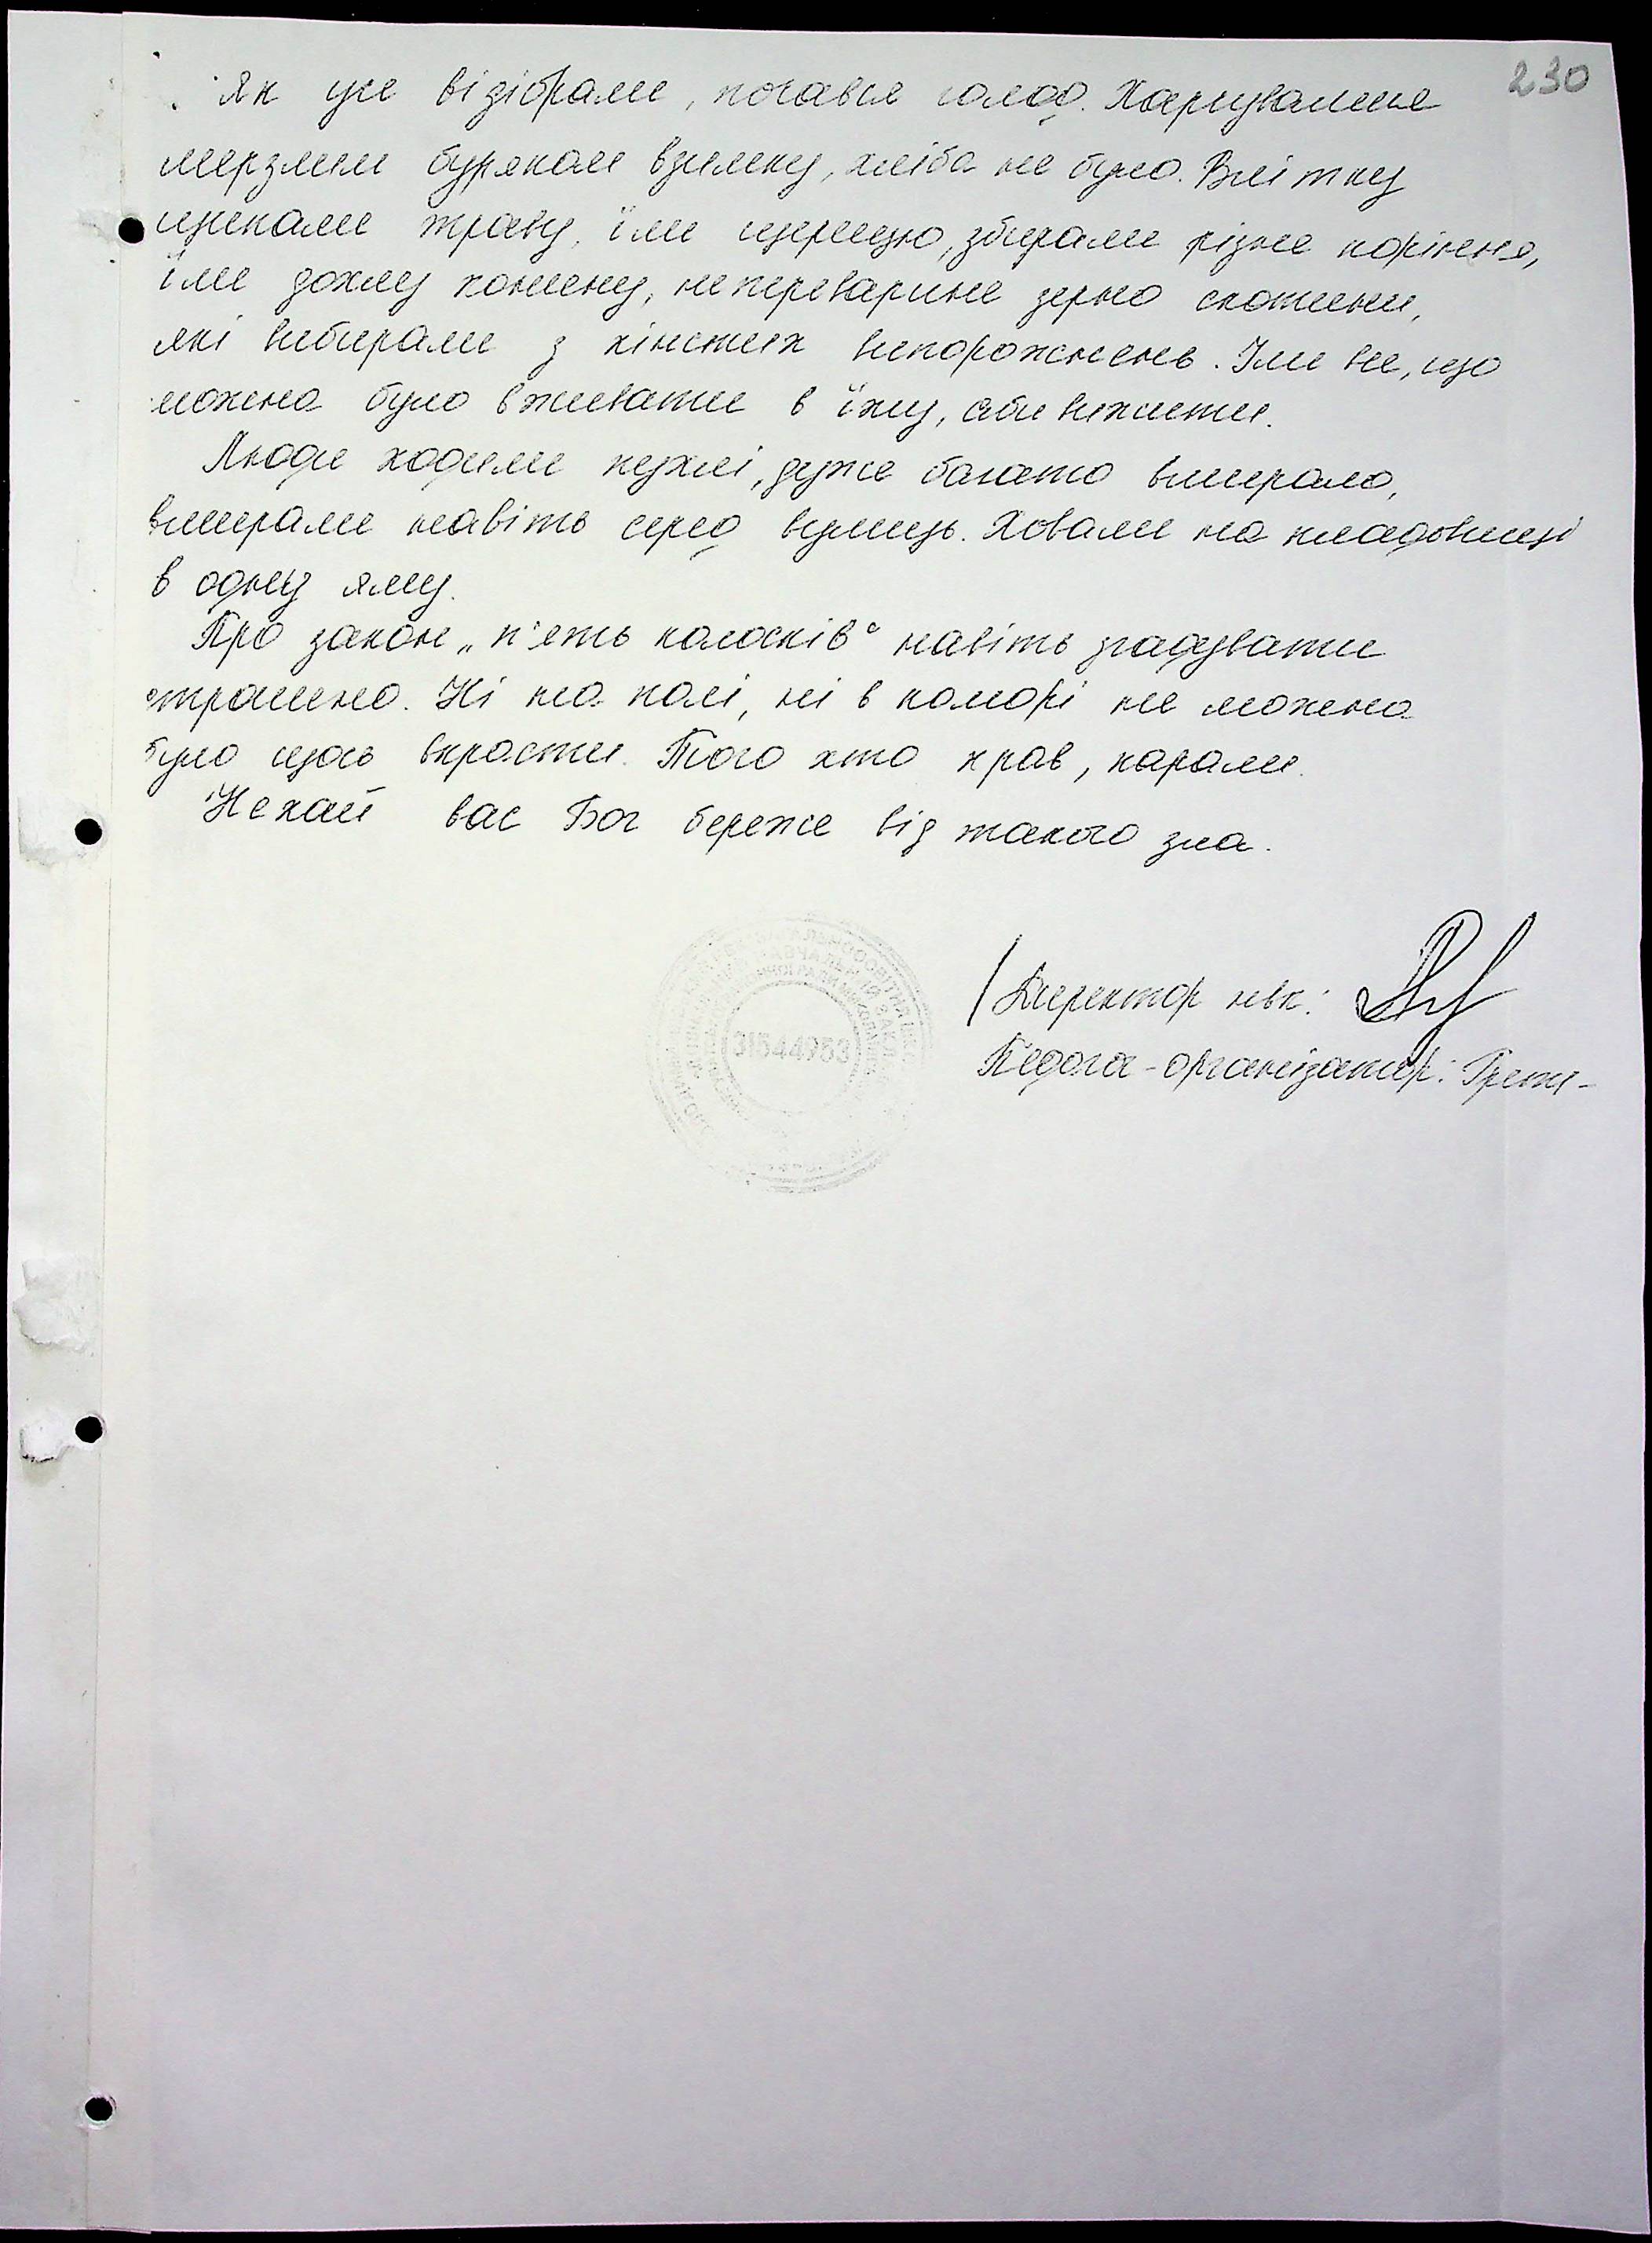 230
Як уже відібрали, почався голод. Харчувались
мерзлим буряком взимку, хліба не було. Влітку
щипали траву, їли щирицю, збирали різне коріння,
їли дохлу конину, неперетравлене зерно скотини,
які вибирали з кінських випорожнень. Їли все, що
можна було вживати в їжу, аби вижити.
Люди ходили пухлі, дуже багато вмирало,
вмирали навіть серед вулиць. Ховали на кладовищі
в одну яму.
Про закон „п'ять колосків" навіть згадувати
страшно. Ні на полі, ні в коморі не можна
було щось вкрасти. Того хто крав, карали.
Нехай вас Бог береже від такого зла.
Директор нвк:
Педагог-організатор:
31544953